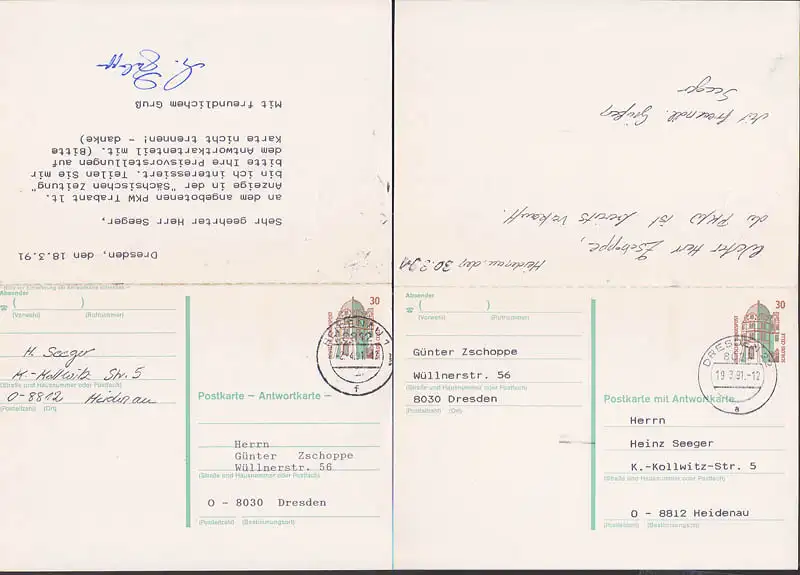 Dresden, den 18.3.91
Sehr geehrter Herr Seeger,
an dem angebotenen PKW Trabant lt.
Anzeige in der "Sächsischen Zeitung"
bin ich interessiert. Teilen Sie mir
bitte Ihre Preisvorstellungen auf
dem Antwortkartenteil mit. (Bitte
Karte nicht trennen! - danke)
Mit freundlichem Gruß
G. Zschoppe
Absender
( )
(Vorwahl) (Rufnummer)
H. Seeger
K-Kollwitz Str. 5
(Straße und Hausnummer oder Postfach)
O-8812 Heidenau
(Postleitzahl) (Ort)
30
HEIDENAU 1
8812
f
Postkarte – Antwortkarte –
Herrn
Günter Zschoppe
Wüllnerstr. 56
(Straße und Hausnummer oder Postfach)
O - 8030 Dresden
(Postleitzahl) (Bestimmungsort)
Heidenau, den 30.3.91
Werter Herr Zschoppe,
der PKW ist bereits verkauft.
Mit freundl. Grüßen
Seeger
Absender
( )
(Vorwahl) (Rufnummer)
Günter Zschoppe
Wüllnerstr. 56
(Straße und Hausnummer oder Postfach)
8030 Dresden
(Postleitzahl) (Ort)
30
DRESDEN
19.3.91.-12
a
Postkarte mit Antwortkarte
Herrn
Heinz Seeger
K.-Kollwitz-Str. 5
(Straße und Hausnummer oder Postfach)
O - 8812 Heidenau
(Postleitzahl) (Bestimmungsort)